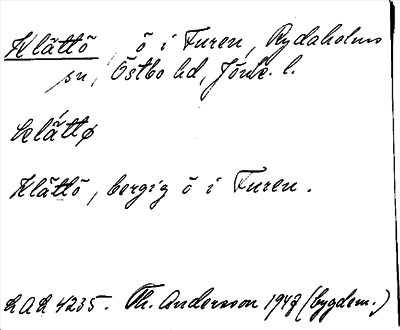 Klättö, ö i Furen, Rydaholms
sn, Östbo hd, Jönk. l.
klättø
Klättö, bergig ö i Furen.
LAL 4235. Th. Andersson 1947 (bygdem.)